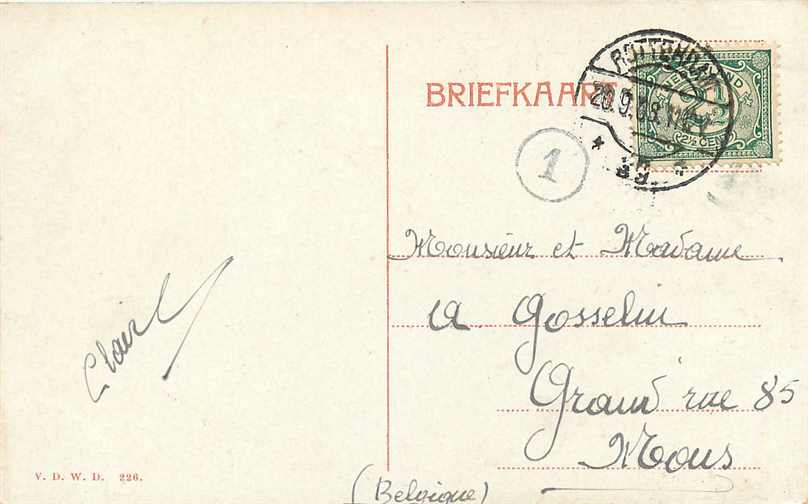 BRIEFKAART
ROTTERDAM
20.9.08
2½ CENT
1
Monsieur et Madame
A Gosselin
Grand rue 85
Mons
(Belgique)
Claire
V. D. W. D. 226.